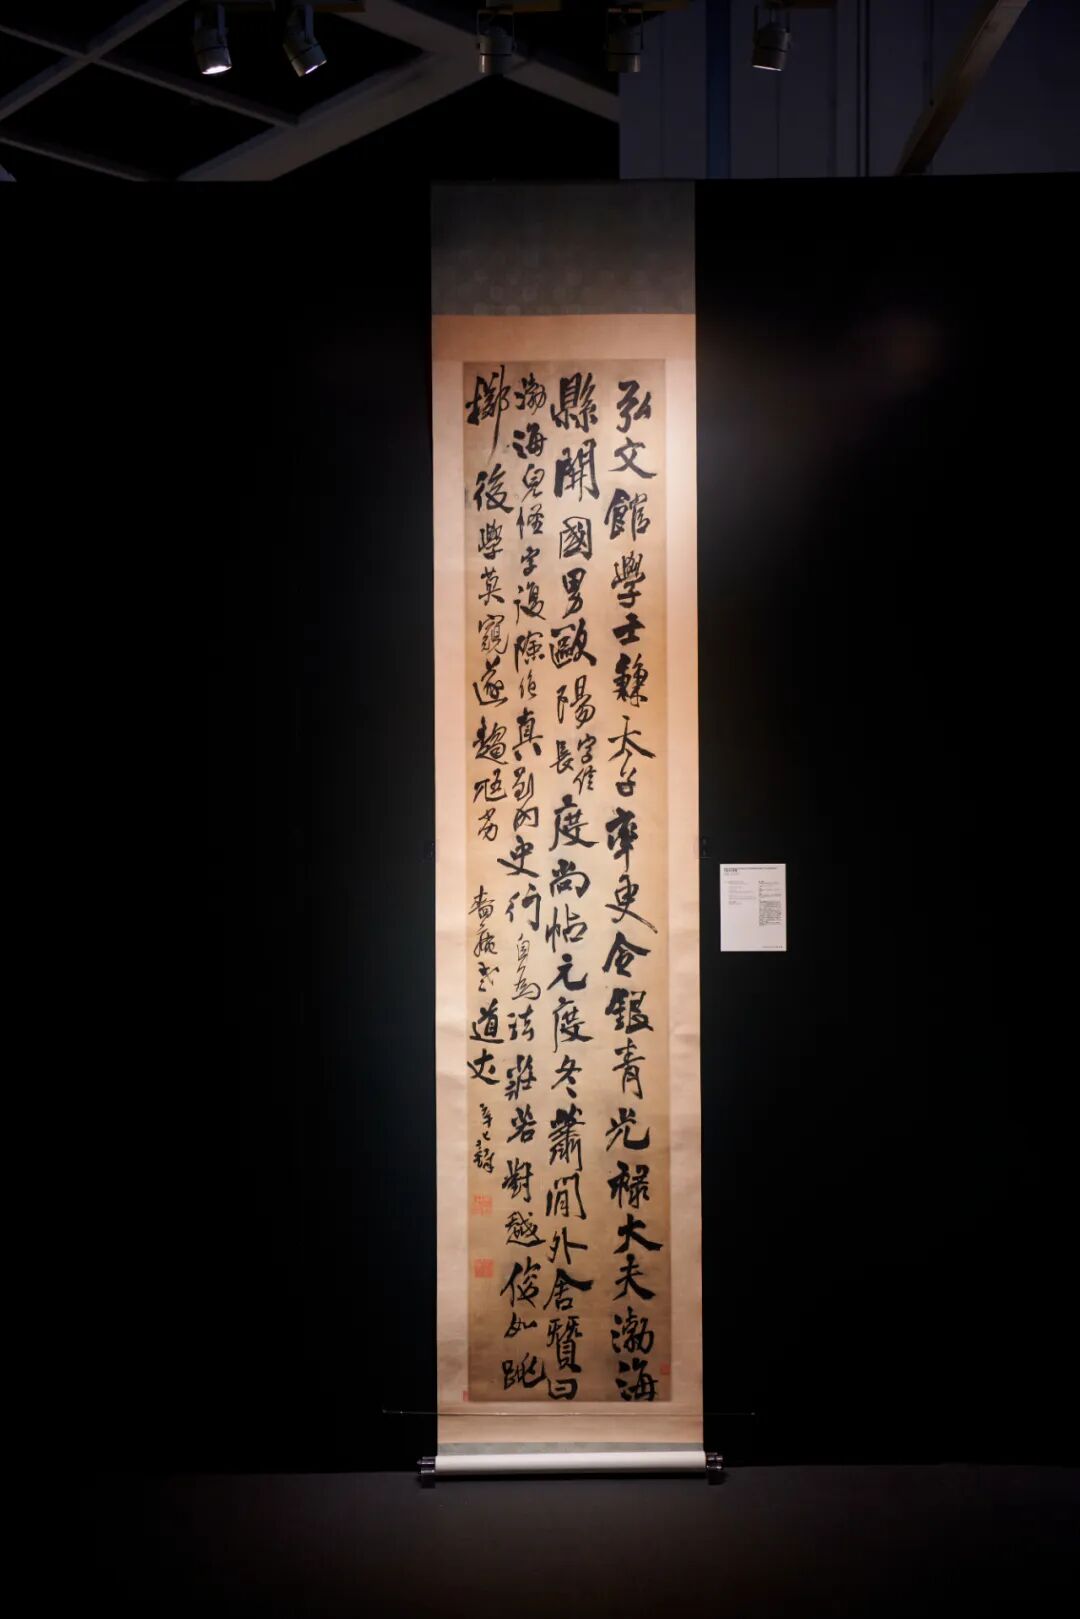 弘文館學士兼太子率更令銀青光祿大夫渤海
縣開國男歐陽字信長度尚帖元度冬蕭閒外舍贊曰
渤海兒怪字復險絕真到內史行自為法莊若對越俊如跳
擲後學莫窺遂趨尪劣
道丈
辛巳鐸